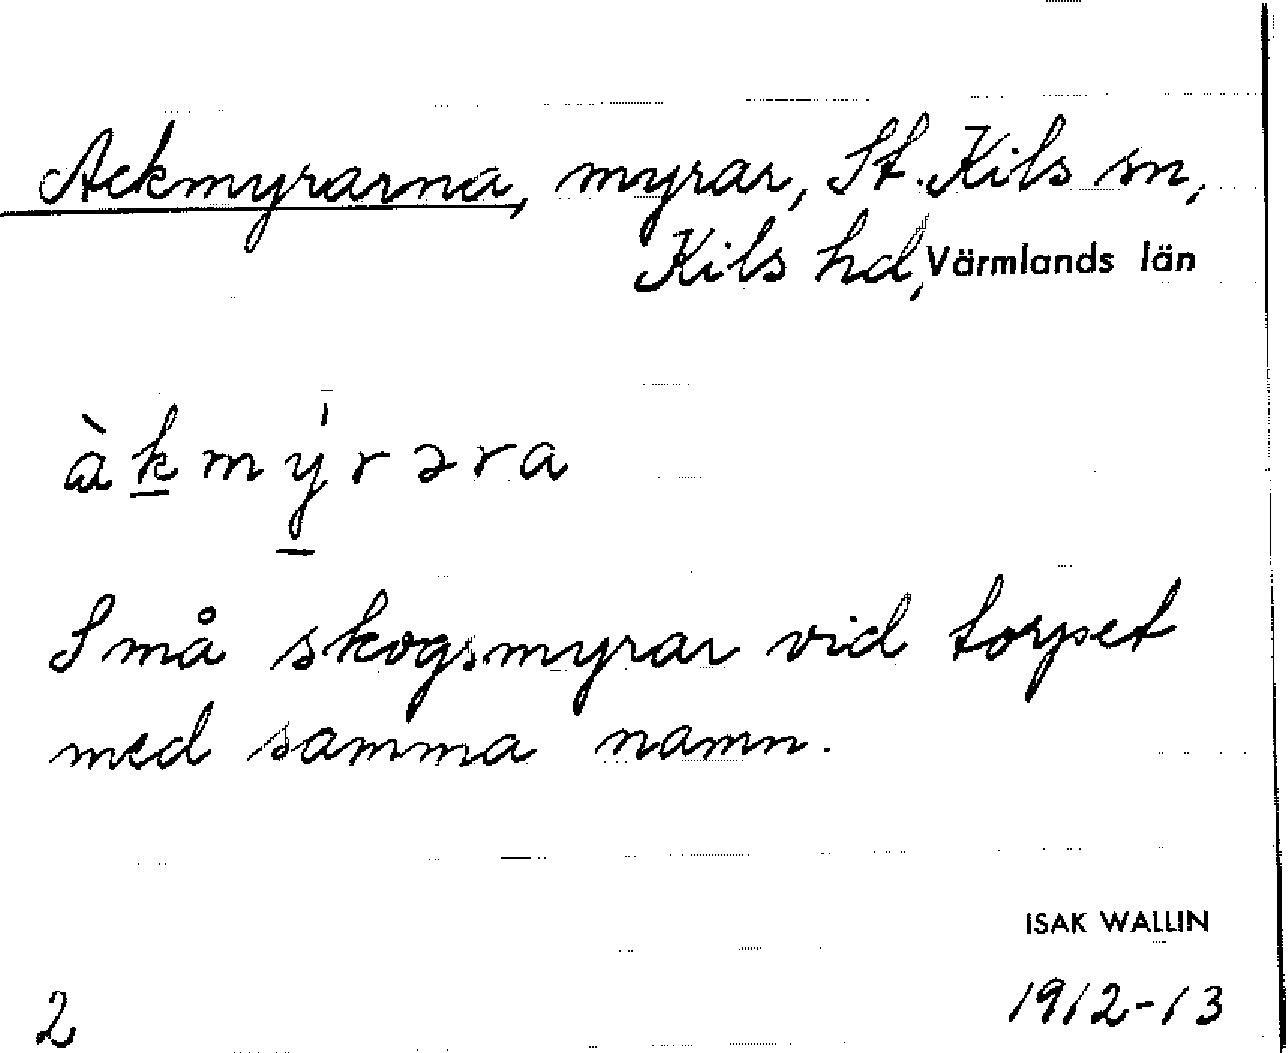 Ackmyrarna, myrar, St. Kils sn,
Kils hd, Värmlands län
àk̲mý̲rəra
Små skogsmyrar vid torpet
med samma namn.
ISAK WALLIN
1912-13
2